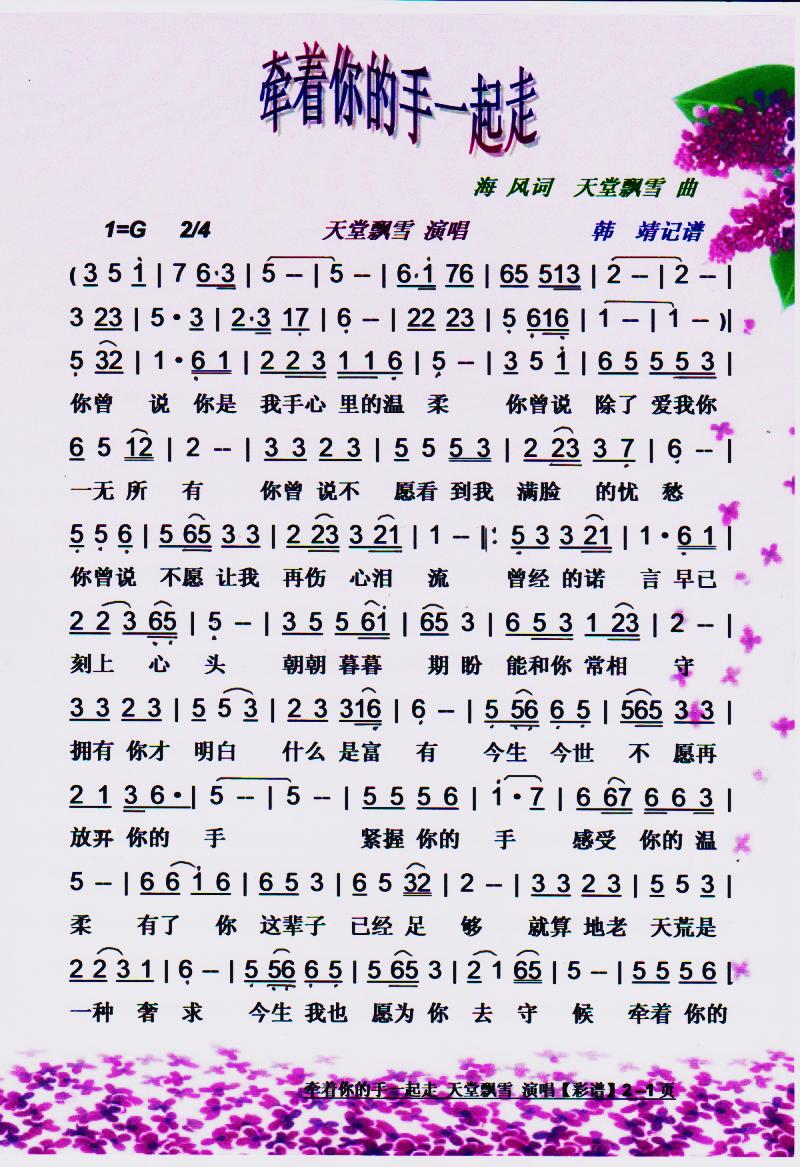 牵着你的手一起走
海 风词 天堂飘雪 曲
1=G 2/4 天堂飘雪 演唱 韩 靖记谱
( 3 5 1 | 7 6·3 | 5 -- | 5 -- | 6·1 76 | 65 513 | 2 -- | 2 -- |
3 23 | 5·3 | 2·3 17 | 6 -- | 22 23 | 5 616 | 1 -- | 1 -- )|
5 32 | 1·6 1 | 2 2 3 1 1 6 | 5 -- | 3 5 1 | 6 5 5 5 3 |
你曾 说 你是 我手心 里的温 柔 你曾说 除了 爱我你
6 5 12 | 2 -- | 3 3 2 3 | 5 5 5 3 | 2 23 3 7 | 6 -- |
一无 所 有 你曾 说不 愿看 到我 满脸 的忧 愁
5 5 6 | 5 65 3 3 | 2 23 3 21 | 1 -- ‖: 5 3 3 21 | 1·6 1 |
你曾说 不愿 让我 再伤 心泪 流 曾经 的诺 言 早已
2 2 3 65 | 5 -- | 3 5 5 61 | 65 3 | 6 5 3 1 23 | 2 -- |
刻上 心 头 朝朝 暮暮 期 盼 能和你 常相 守
3 3 2 3 | 5 5 3 | 2 3 316 | 6 -- | 5 56 6 5 | 565 3 3 |
拥有 你才 明白 什么 是富 有 今生 今世 不 愿再
2 1 3 6·| 5 -- | 5 -- | 5 5 5 6 | 1·7 | 6 67 6 6 3 |
放开 你的 手 紧握 你的 手 感受 你的 温
5 -- | 6 6 1 6 | 6 5 3 | 6 5 32 | 2 -- | 3 3 2 3 | 5 5 3 |
柔 有了 你 这辈子 已经 足 够 就算 地老 天荒是
2 2 3 1 | 6 -- | 5 56 6 5 | 5 65 3 | 2 1 65 | 5 -- | 5 5 5 6 |
一种 奢 求 今生 我也 愿为 你 去 守 候 牵着 你的
牵着你的手一起走 天堂飘雪 演唱【彩谱】2 -1页